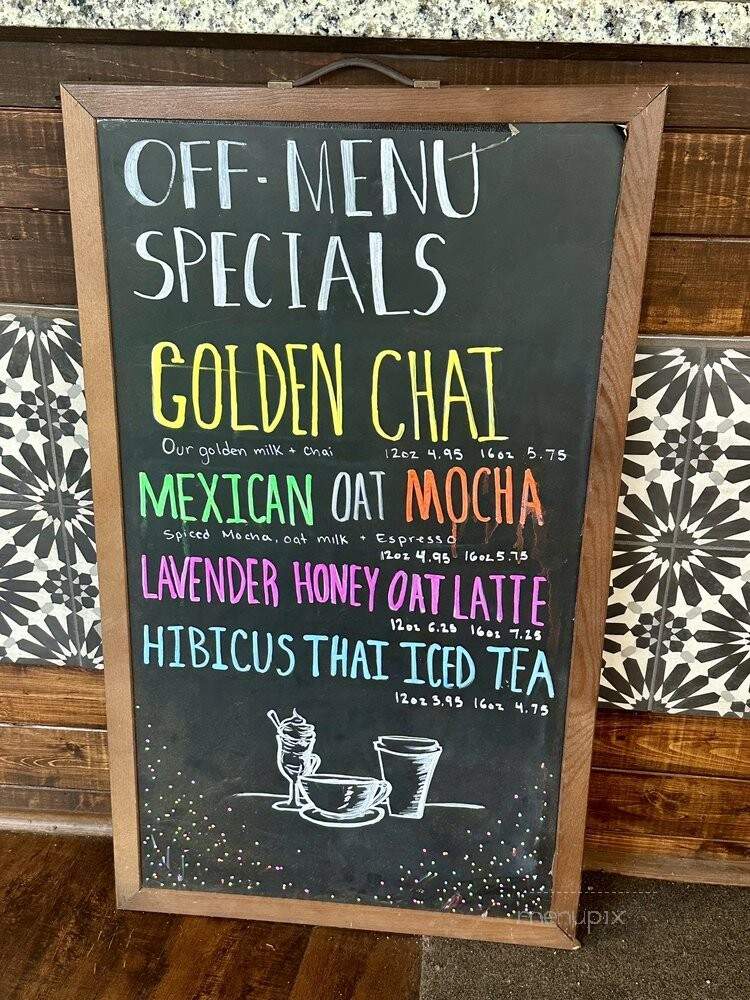 OFF-MENU
SPECIALS
GOLDEN CHAI
Our golden milk + chai 12oz 4.95 16oz 5.75
MEXICAN OAT MOCHA
Spiced Mocha, oat milk + Espresso
12oz 4.95 16oz 5.75
LAVENDER HONEY OAT LATTE
12oz 6.25 16oz 7.25
HIBICUS THAI ICED TEA
12oz 3.95 16oz 4.75
menupix